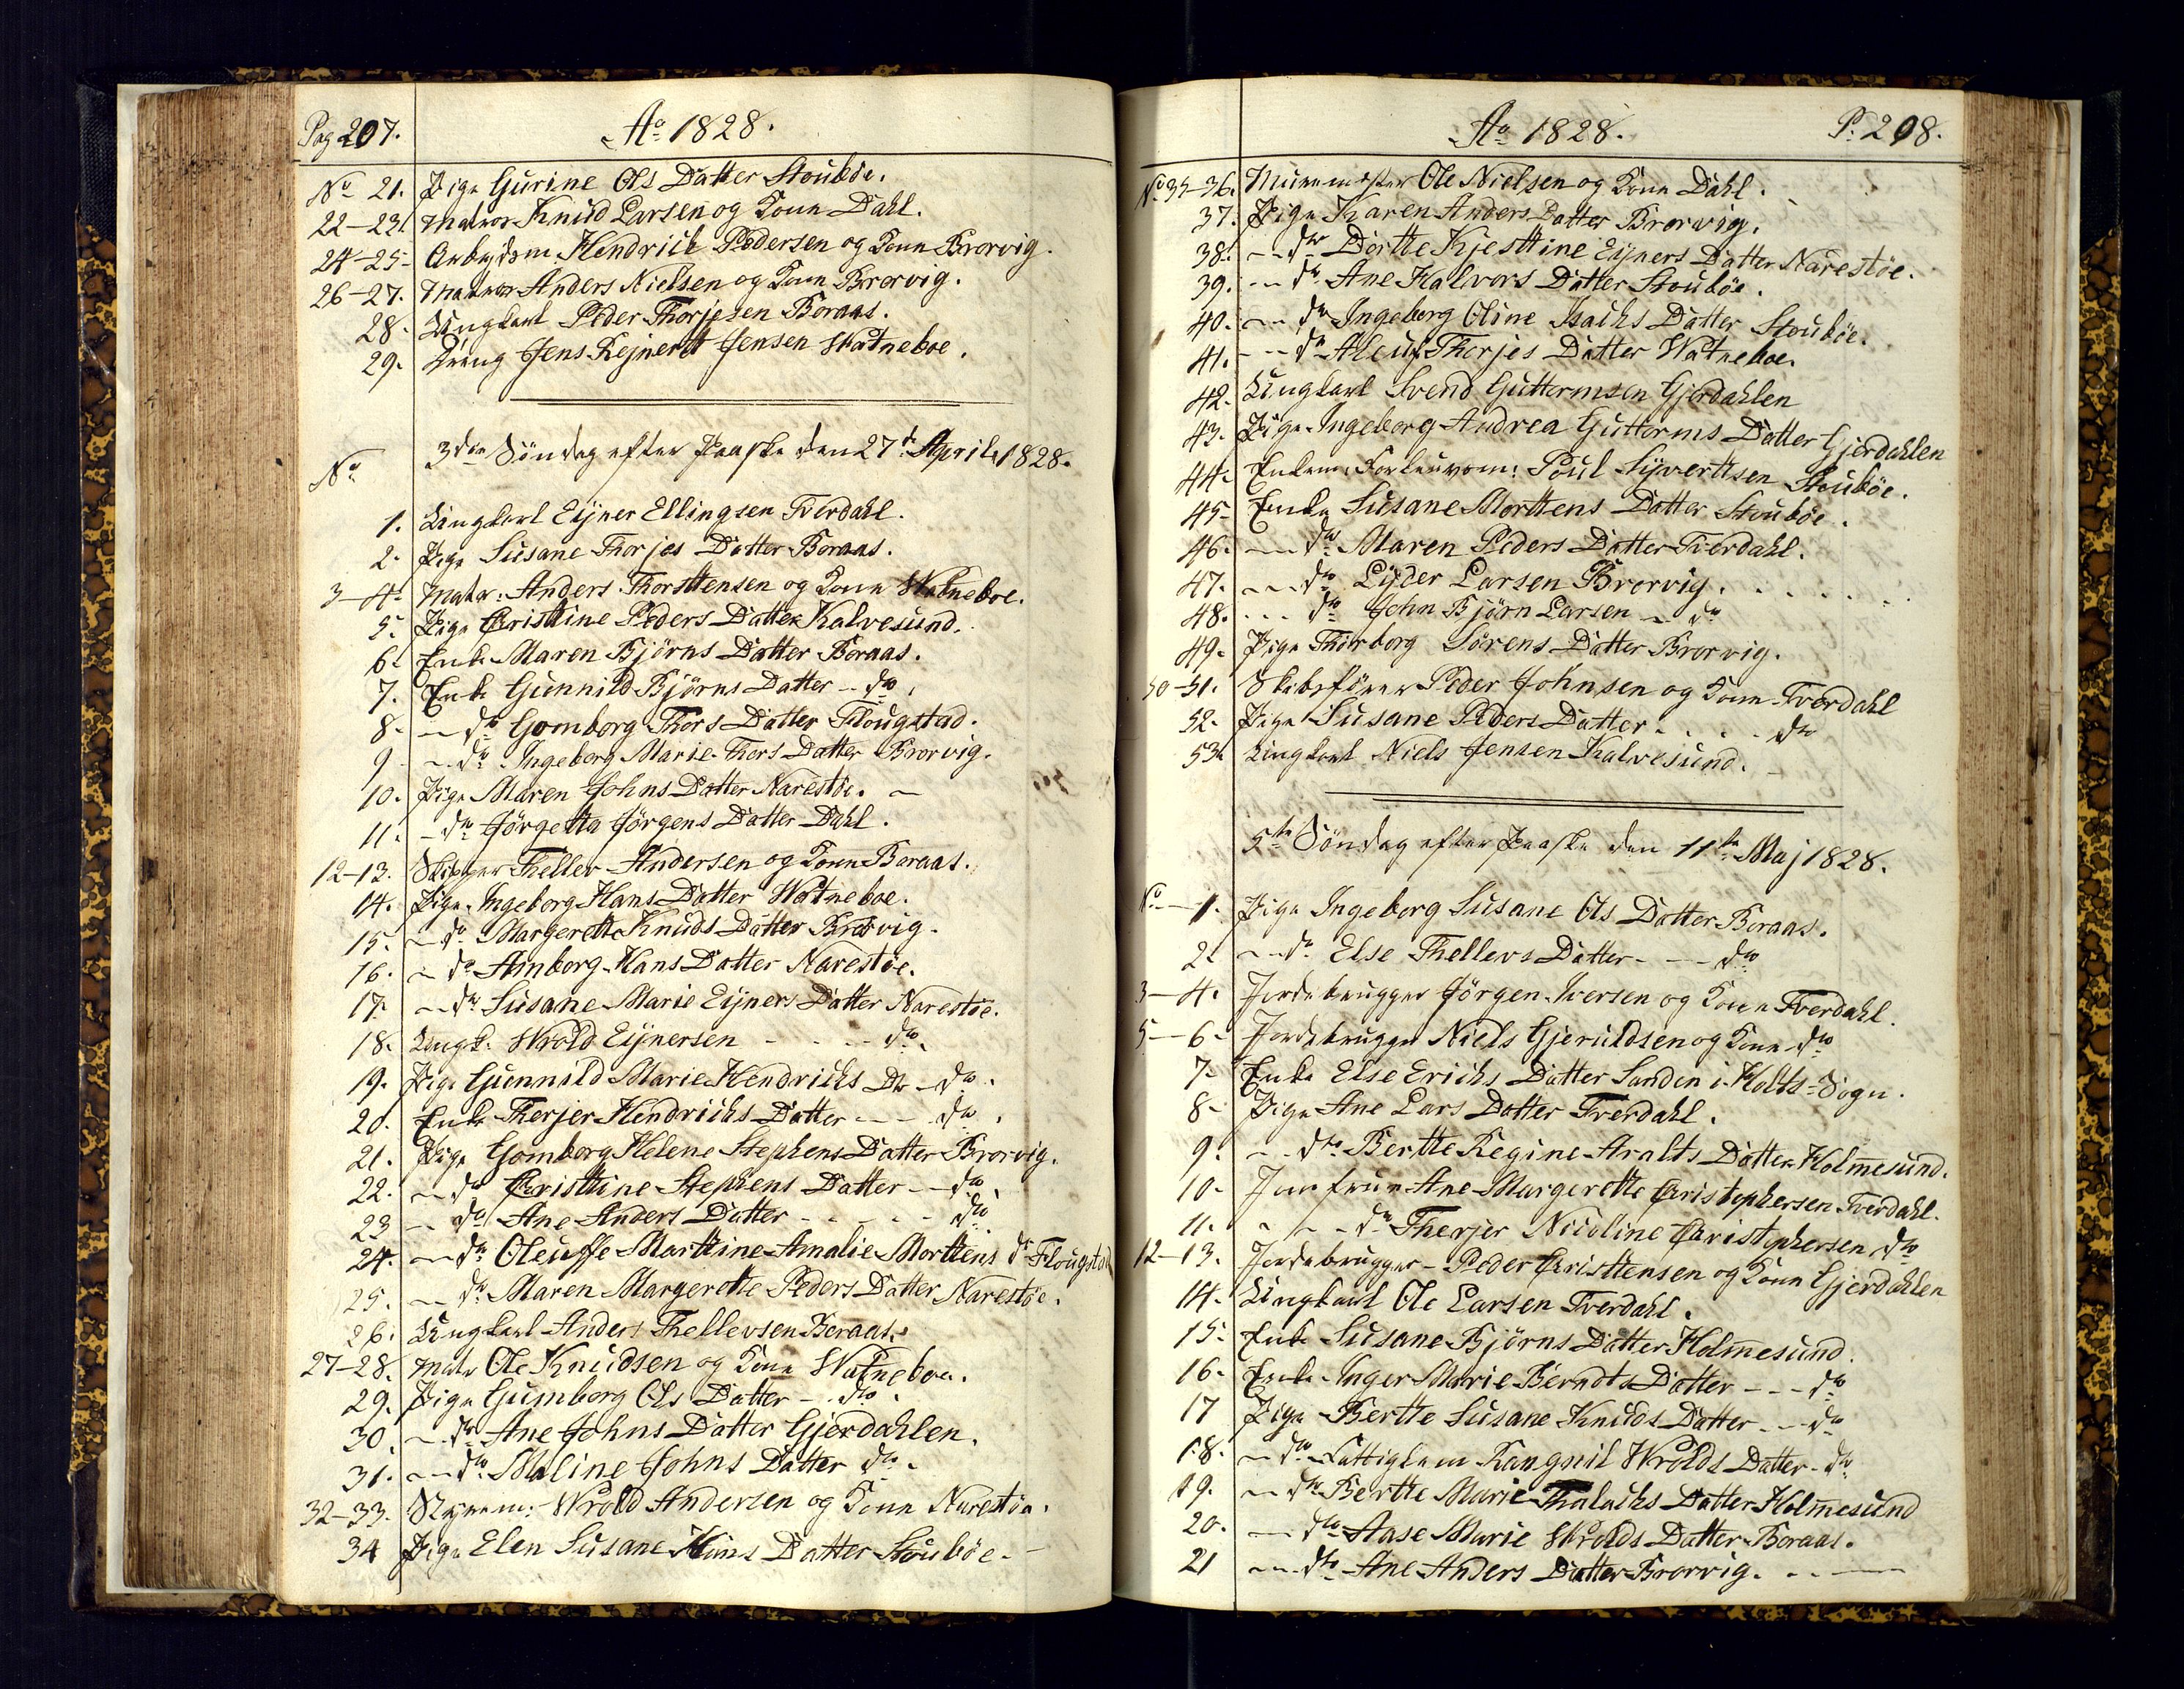 Pag 207.
Ao 1828.
No 21. Pige Gurine Ols Datter Stoubøe.
22-23. Matros Knud Larsen og Kone Dahl.
24-25- Arbejdsm. Hendrich Pedersen og Kone Brorvig.
26-27. Matros Anders Nielsen og Kone Brorvig.
28. Ungkarl Peder Thorjesen Boraas.
29. Dreng Jens Rejnert Jensen Watneboe.
No
3die Söndag efter Paaske den 27de April 1828.
1. Ungkarl Eijner Ellingsen Tverdahl.
2. Pige Susane Thorjes Datter Boraas.
3-4- Matr: Anders Thorsttensen og Kone Watneboe.
5. Pige Christtine Peders Datter Kalvesund.
6. Enke Maren Bjørns Datter Boraas.
7. Enke Gunnild Bjørns Datter -- do.
8- -- do Gomborg Thors Datter Flougstad.
9- -- do Ingeborg Marie Thors Datter Brorvig.
10. Pige Maren Johns Datter Narestöe. -
11. - do Jørgetta Jørgens Datter Dahl.
12-13. Skipper Thellev Andersen og Kone Boraas.
14. Pige Ingeborg Hans Datter Watneboe.
15. - do Margerette Knuds Datter Brorvig.
16. - do Amborg Hans Datter Narestøe.
17. -- do Susane Marie Eijners Datter Narestöe.
18. Ungk. Wrold Eijnersen - - - - do.
19. Pige Gunnild Marie Hendrichs Dr - do.
20. Enke Therjer Hendrichs Datter - - - do.
21. Pige Gomborg Helene Stephens Datter Brorvig.
22. -- do Christtine Stephens Datter -- do.
23 -- do Ane Anders Datter - - - - - do.
24. -- do Oleuffe Marttine Amalie Morttens dr Flougstad
25. -- do Maren Margerette Peders Datter Narestöe.
26. Ungkarl Anders Thellevsen Boraas.
27-28. Matr Ole Knudsen og Kone Watneboe.
29. Pige Gumborg Ols Datter - - do.
30. -- do Ane Johns Datter Gjerdahlen.
31. -- do Maline Johns Datter do.
32-33. Styrem: Wrold Andersen og Kone Narestöe.
34 Pige Elen Susane Datter Stoubøe. -
Ao 1828.
P. 208.
No 35-36. Muremester Ole Nielsen og Kone Dahl.
37. Pige Karen Anders Datter Brorvig.
38. -- do Dortte Kjesttine Eijners Datter Narestöe.
39. -- do Ane Halvors Datter Stoubøe.
40. -- do Ingeborg Oline Isachs Datter Stoubøe.
41. -- do Aleuf Thorjes Datter Watneboe.
42. Ungkarl Svend Guttormsen Gjerdahlen
43. Pige Ingeborg Andrea Guttorms Datter Gjerdahlen
44. Enkem: Poul Syverttsen Stoubøe.
45- Enke Susane Morttens Datter Stoubøe.
46. -- do Maren Peders Datter Tverdahl.
47. -- do Lyder Larsen Brorvig. . . . . .
48. . . . do John Bjørn Larsen - do
49. Pige Thorborg Sörens Datter Brorvig.
50-51. Skibsfører Peder Johnsen og Kone Tverdahl
52. Pige Susane Peders Datter . . . . do
53. Ungkarl Niels Jensen Kalvesund.
5te Söndag efter Paaske den 11te Maj 1828.
No - 1. Pige Ingeborg Susane Ols Datter Boraas.
2. -- do Else Thellevs Datter - -- do
3-4. Jordebrugger Jørgen Iversen og Kone Tverdahl.
5-6- Jordebrugger Niels Gjeruldsen og Kone do
7- Enke Else Erichs Datter Sanden i Holts-Sogn.
8- Pige Ane Lars Datter Tverdahl.
9. -- do Bertte Regine Aralts Datter Holmesund.
10- Jomfrue Ane Margerette Christophersen Tverdahl.
11. - -- do Therjer Nicoline Christophersen do
12-13. Jordebrugger - Peder Christtensen og Kone Gjerdahlen
14. Ungkarl Ole Larsen Tverdahl.
15. Enke Susane Bjørns Datter Holmesund.
16- Enke Inger Marie Berndts Datter - - - do
17 Pige Bertte Susane Knuds Datter - - do
18. -- do Fattiglem Rangnil Wrolds Datter - do
19. -- do Bertte Marie Thalachs Datter Holmesund
20. -- do Aase Marie Wrolds Datter Boraas.
21 -- do Ane Anders Datter Brorvig. - - --